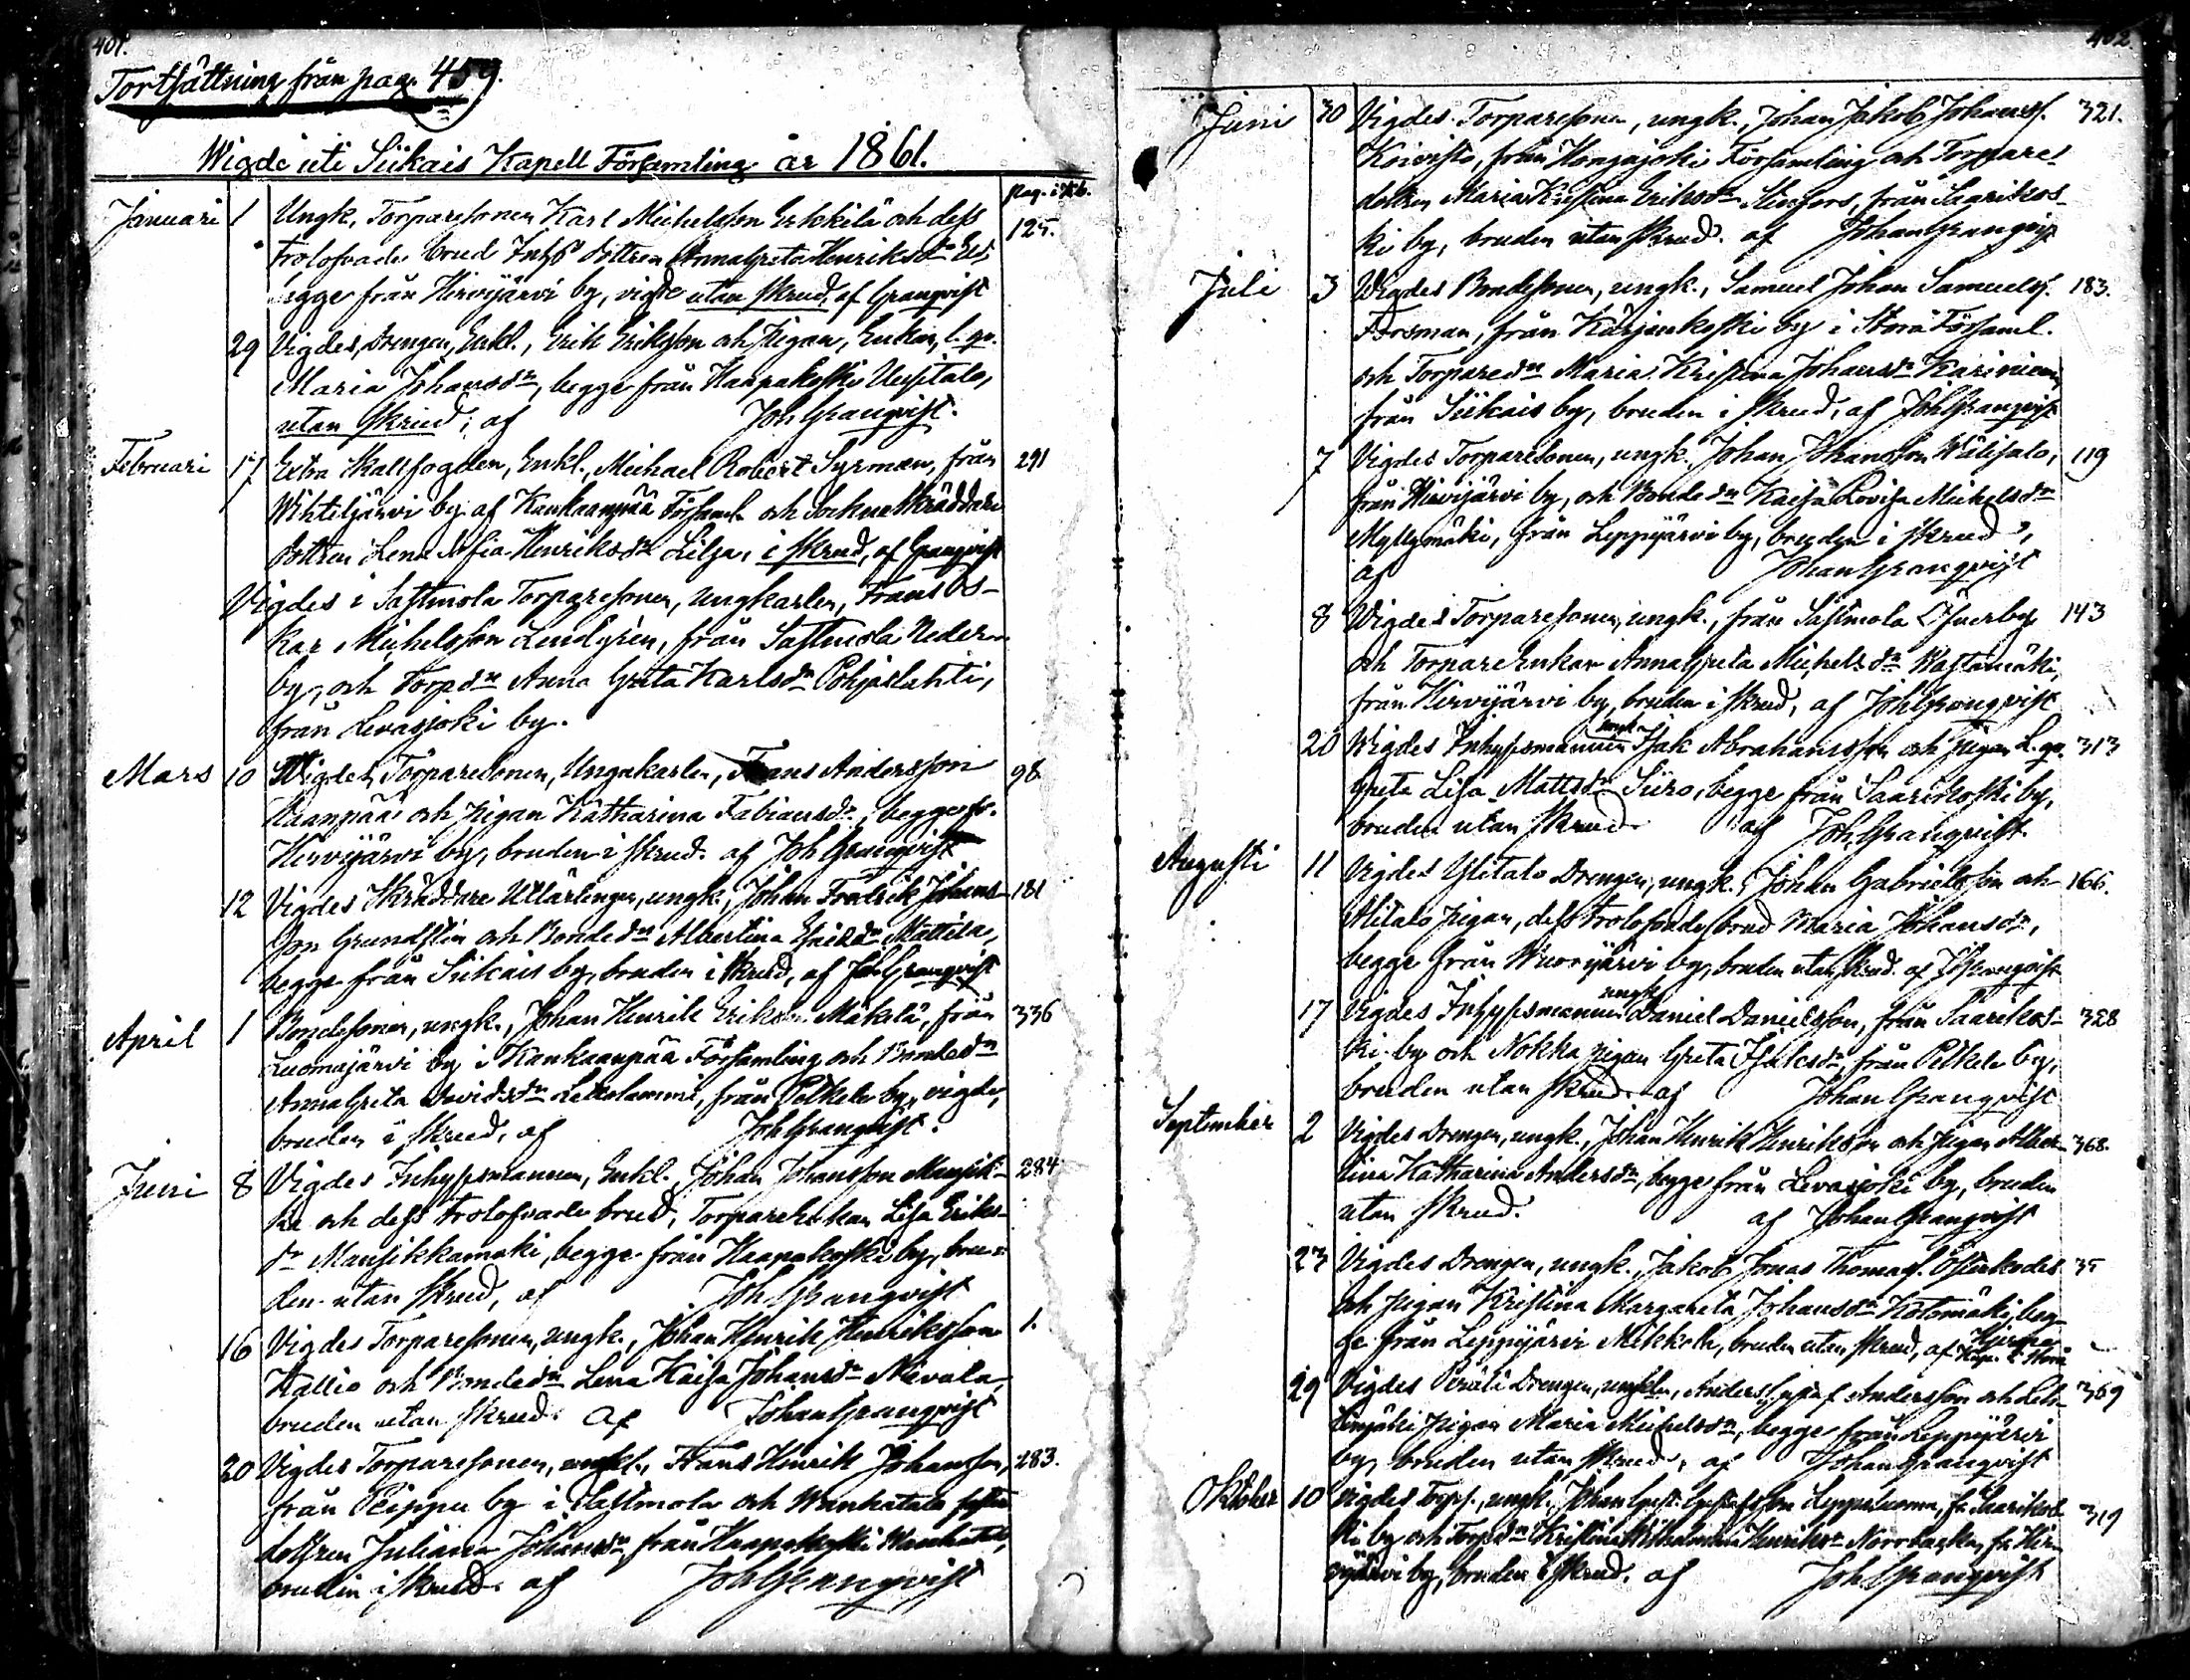 401.
Fortsättning från pag. 459.
Wigde uti Siikais Kapell Församling år 1861.
pag. i Kb.
Januari 1 Ungk. Torparesonen Karl Michelsson Erkkilä och dess 125.
trolofvade brud Inhs dottren Anna Greta Henriksdr
begge från Hirvijärvi by, vigde utan skrud, af Granqvist
29 Vigdes, Drengen, Enkl., Erik Eriksson och Pigan, Enkan, l. qv.
Maria Johansdr, begge från Haapakoski Uusitalo,
utan skrud; af Joh Granqvist.
Februari 17 Extra Kallfogden, Enkl., Michael Robert Syrman, från 291
Wihteljärvi by af Kankaanpää Församl. och Sockne Skräddare
dottren Lena Sofia Henriksdr Lilja, i skrud, af Granqvist
Vigdes i Sastmola Torparesonen, ungkarlen, Frans Os-
kar Michelsson Lindgren, från Sastmola Neder-
by, och Torpdr Anna Greta Karlsdr Pohjaslahti,
från Levasjoki by.
Mars 10 Wigdes, Torparesonen, Ungkarlen, Frans Andersson 98
Haanpää och pigan Katharina Fabiansdr, begge fr.
Hirvijärvi by, bruden i skrud. af Joh Granqvist
12 Vigdes Skräddare Utlärlingen, ungk., Johan Fredrik Johans- 181
son Grundstén och Bondedr Albertina Mattila,
begge från Siikais by, bruden i skrud, af Joh Granqvist
April 1 Bondesonen, ungk., Johan Henrik Eriksson Mäkelä, från 336
Luomajärvi by i Kankaanpää Församling och Bondedr
Anna Greta Davidsdr Leitolammi, från Pelkele by, vigde,
bruden i skrud, af Joh Granqvist.
Juni 8 Vigdes Inhysesmannen, Enkl., Johan Johansson Mansik- 284
ka och dess trolofvade brud, Torpare Enkan Lisa Eriks-
dr Mansikkamäki, begge från Haapakoski by, bru-
den utan skrud, af Joh Granqvist
16 Vigdes Torparesonen, ungk., Johan Henrik Henriksson 1.
Kallio och Bondedr Lena Kaisa Johansdr Nievala,
bruden utan skrud. af Johan Granqvist
20 Vigdes Torparesonen, ungk., Frans Henrik Johansson, 283.
från Peippu by i Sastmola och Wanhatalo
dottren Juliana Johansdr, från Haapakoski Wanhatalo,
bruden i skrud. af Joh Granqvist
402.
Juni 30 Vigdes Torparesonen, ungk., Johan Jakob Johanss. 321.
Koivisto, från Hongajoki Församling och Torpare-
dottren Maria Kristina Eriksdr Stenfors, från Saarikos-
ki by, bruden utan skrud. af Johan Granqvist
Juli 3 Wigdes Bondesonen, ungk., Samuel Johan Samuels. 183.
Forsman, från Kärjenkoski by i Storå Församl.
och Torparedr Maria Kristina Johansdr Kariniemi,
från Siikais by, bruden i skrud, af Joh Granqvist
7 Vigdes Torparesonen, ungk., Johan Johansson Wälisalo, 119
från Hirvijärvi by, och Bondedr Kaisa Lovisa Michelsdr
Myllymäki, från Leppijärvi by, bruden i skrud,
af Johan Granqvist
8 Wigdes Torparesonen, ungk., från Sastmola Öfverby 143
och Torpare Enkan Anna Greta Michelsdr Wastamäki,
från Hirvijärvi by, bruden i skrud, af Joh Granqvist
20 Wigdes Inhysesmannen ungk. Isak Abrahamsson och pigan l. qv. 313
Greta Lisa Mattsdr Siiro, begge från Saarikoski by,
bruden utan skrud. af Joh. Granqvist.
Augusti 11 Vigdes Ylitalo Drengen, ungk., Johan Gabrielsson och 166.
Alitalo pigan, dess trolofvade brud Maria Johansdr,
begge från Wuorijärvi by, bruden utan skrud. af Joh Granqvist
17 Vigdes Inhysesmannen ungk. Daniel Danielsson, från Saarikos- 328
ki by och Nokka pigan Greta Isaksdr, från Pelkele by,
bruden utan skrud. af Johan Granqvist
September 2 Vigdes Drengen, ungk., Johan Henrik Henriksson och pigan Alber- 368.
tina Katharina Andersdr, begge från Levasjoki by, bruden
utan skrud. af Johan Granqvist
23 Vigdes Drengen, ungk., Jakob Jonas Thomas. 35
och pigan Kristina Margareta Johansdr Katomäki, beg-
ge från Leppijärvi Mikkola, bruden utan skrud, af Kap. i Storå
29 Vigdes Perälä Drengen, ungkln, Anders Gustaf Andersson och Leh- 369
timäki pigan Maria Michelsdr, begge från Leppijärvi
by, bruden utan skrud, af Johan Granqvist
Oktober 10 Vigdes Torps., ungk., Johan Gust. Gustafsson Leppäluoma, fr. Saarikos- 319
ki by och Torpdr Kristina Wilhelmina Henriksdr Norrbacka, fr. Hir-
vijärvi by, bruden i skrud. af Joh Granqvist